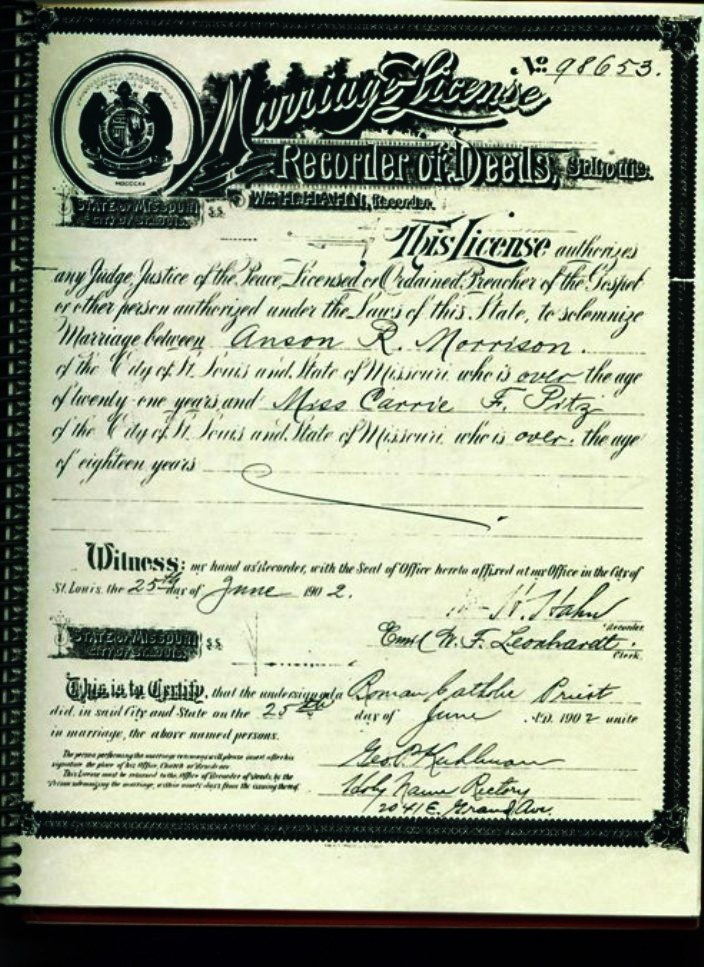 No. 98653.
Marriage License
Recorder of Deeds, St. Louis.
STATE OF MISSOURI
CITY OF ST. LOUIS. } SS. Wm H. HAHN, Recorder.
This License authorizes
any Judge, Justice of the Peace, Licensed or Ordained Preacher of the Gospel
or other person authorized under the Laws of this State, to solemnize
Marriage between Anson R. Morrison.
of the City of St. Louis and State of Missouri who is over the age
of twenty-one years and Miss Carrie F. Pitz
of the City of St. Louis and State of Missouri who is over. the age
of eighteen years
Witness: my hand as Recorder, with the Seal of Office hereto affixed at my Office in the City of
St. Louis, the 25th day of June 1902.
H. Hahn
Recorder.
W. F. Leonhardt.
Clerk.
STATE OF MISSOURI
CITY OF ST. LOUIS. } SS.
This is to Certify, that the undersigned a Roman Catholic Priest
did, in said City and State on the 25th day of June A.D. 1902 unite
in marriage, the above named persons.
The person performing the marriage ceremony will please insert after his
signature the place of his Office, Church or Residence.
This License must be returned to the Office of Recorder of Deeds, by the
Person solemnizing the marriage, within ninety days from the issuing thereof.
Geo. P. Kuhlman
Holy Name Rectory
2041 E. Grand Ave.